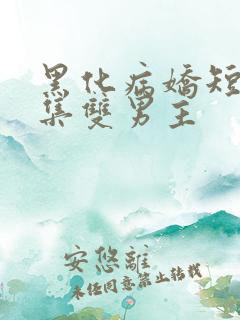 黑化病嬌短
集雙男主
安悠離
未经同意禁止转载